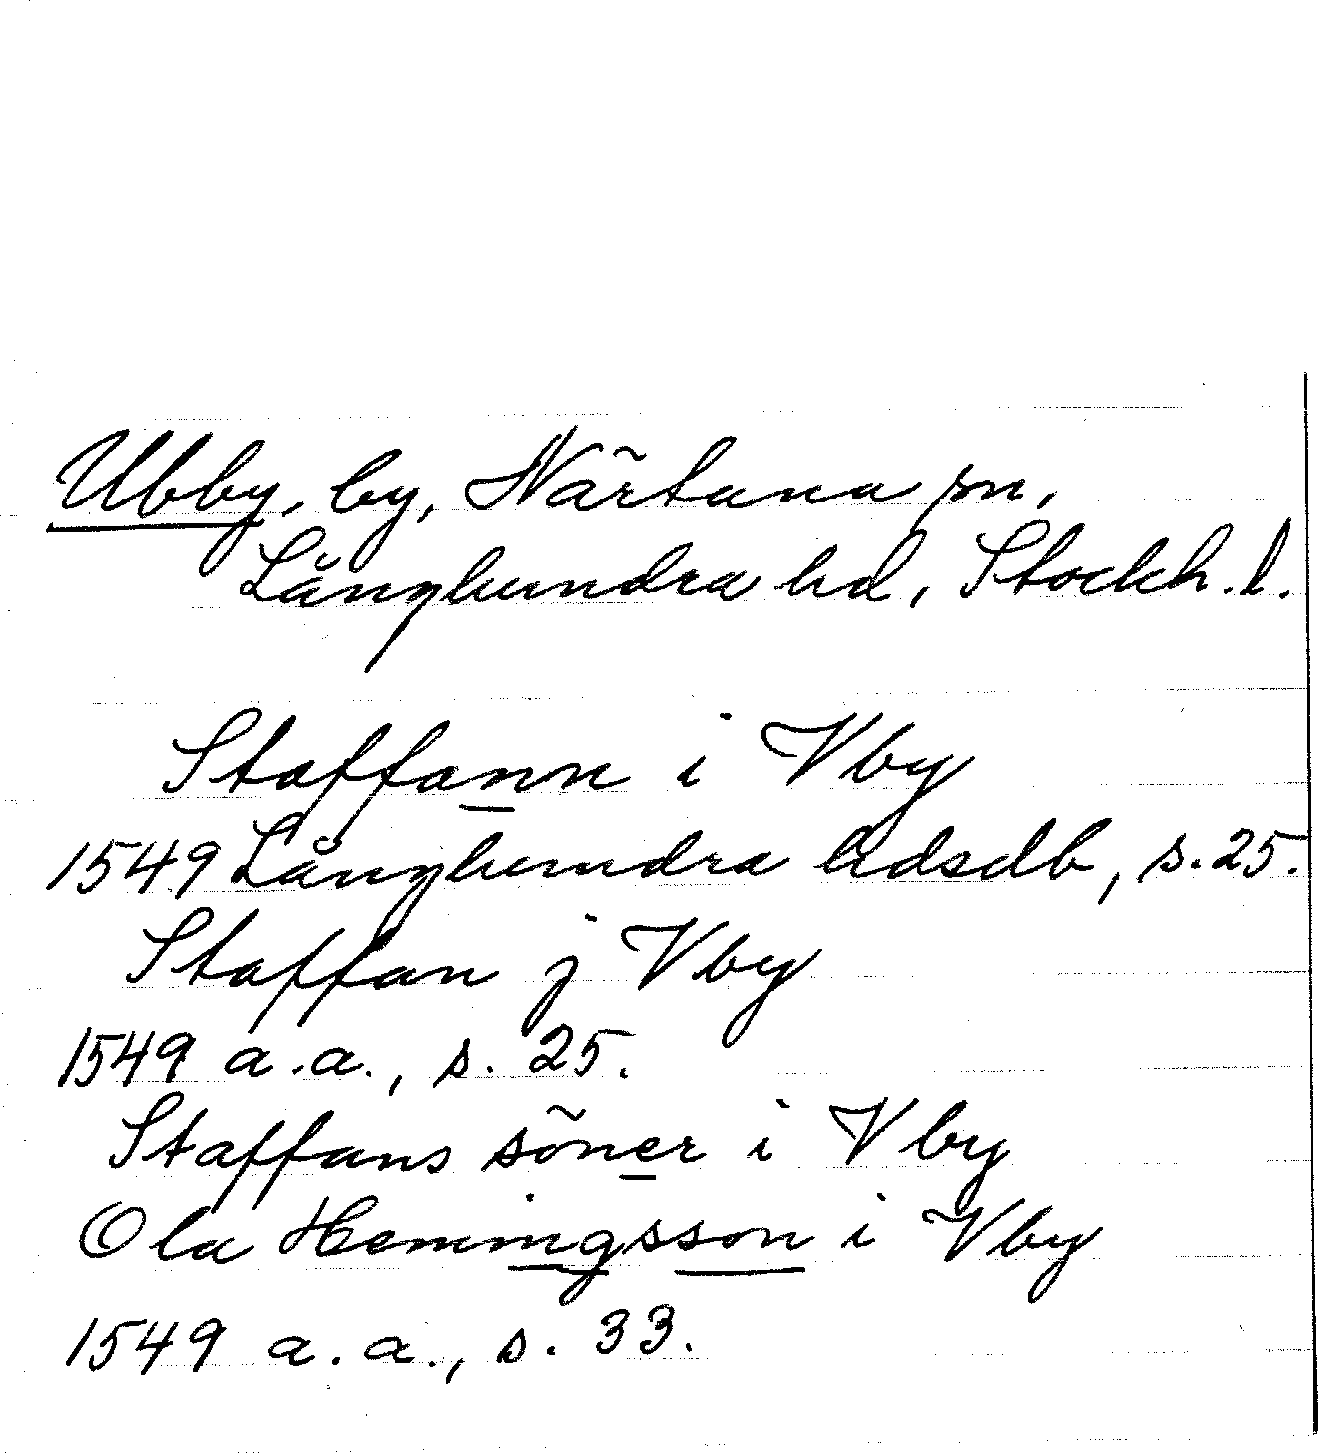 Ubby, by, Närtuna sn,
Långhundra hd, Stockh. l.
Staffann i Vby
1549 Långhundra hdsdb, s. 25.
Staffan j Vby
1549 a.a., s. 25.
Staffans söner i Vby
Ola Hemmigsson i Vby
1549 a.a., s. 33.